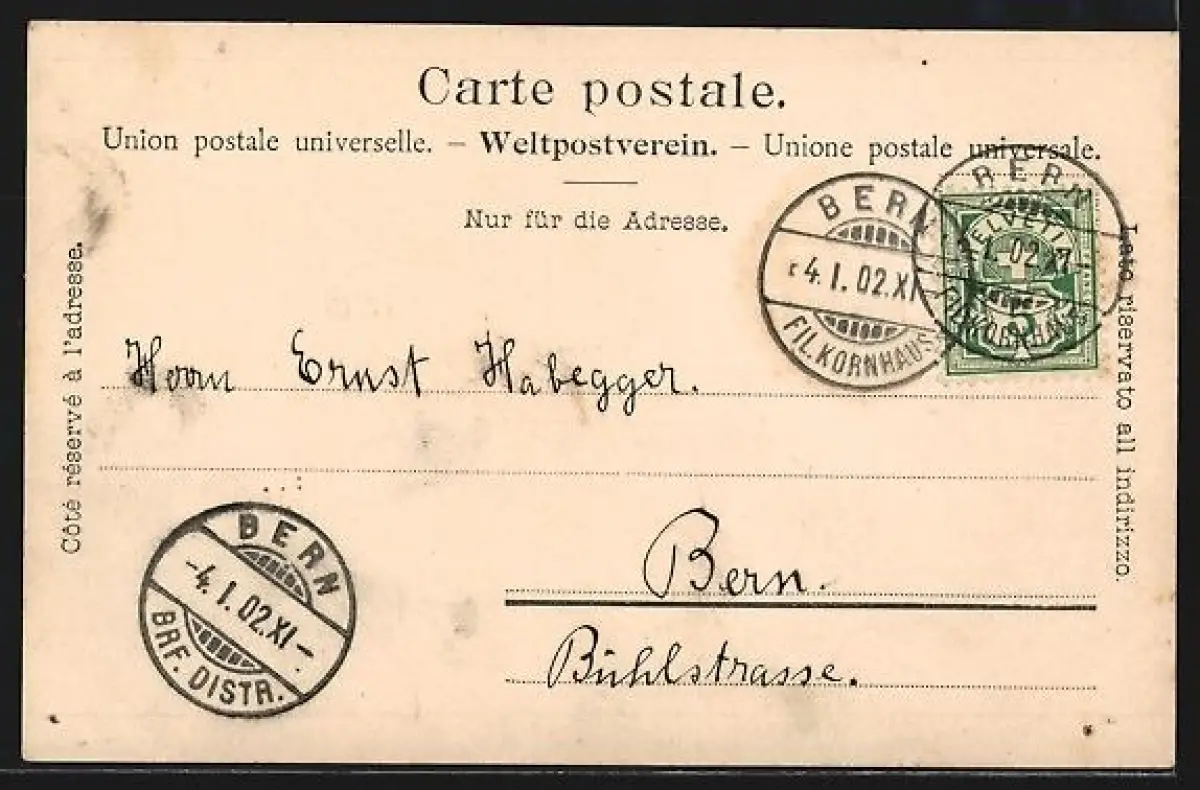 Carte postale.
Union postale universelle. – Weltpostverein. – Unione postale universale.
Nur für die Adresse.
Côté réservé à l'adresse.
Lato riservato all indirizzo.
BERN
4.I.02.XI
FIL.KORNHAUS
BERN
I.02.XI–
FIL.KORNHAUS
HELVETIA
5
Herrn Ernst Habegger.
Bern.
Bühlstrasse.
BERN
-4.I.02.XI–
BRF. DISTR.